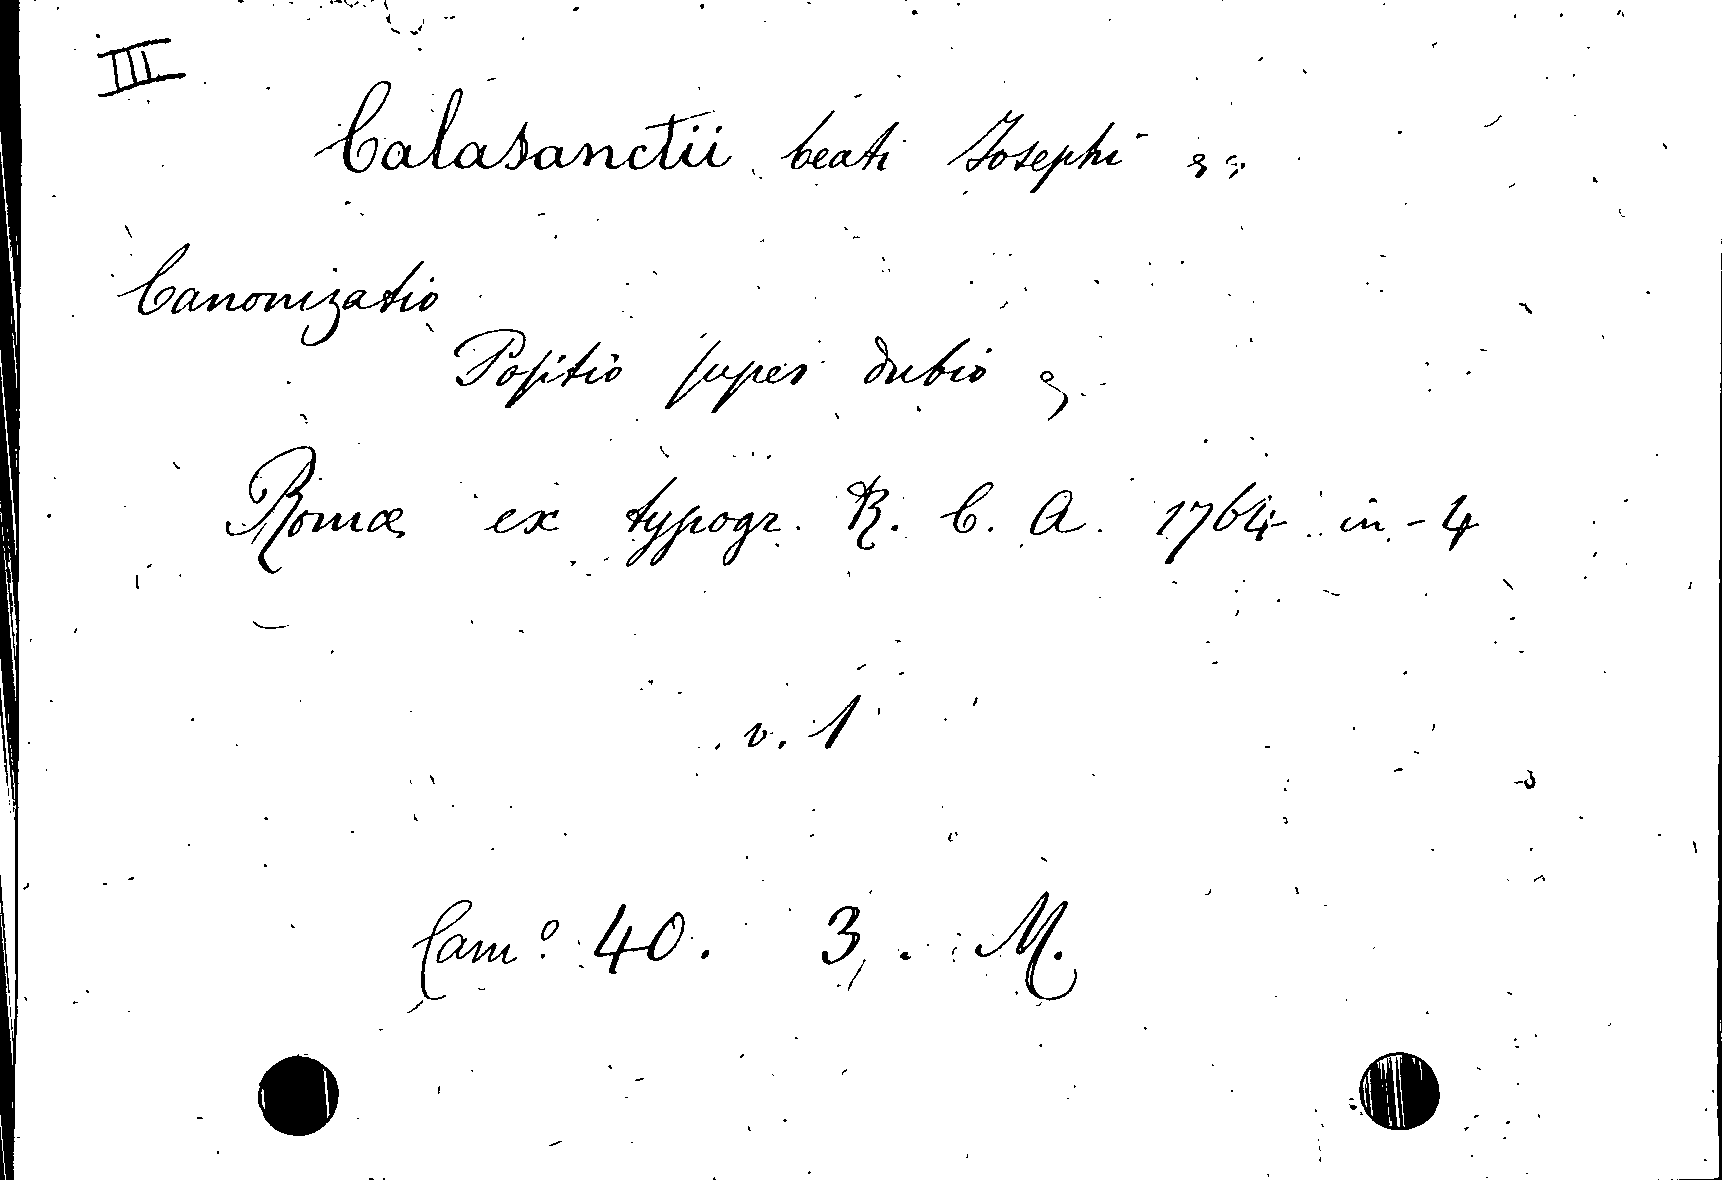 III
Calasanctii beati Josephi
Canonizatio
Positio super dubio
Romæ ex typogr. R. C. A. 1764 in-4
v. 1
Cam.º 40. 3. M.